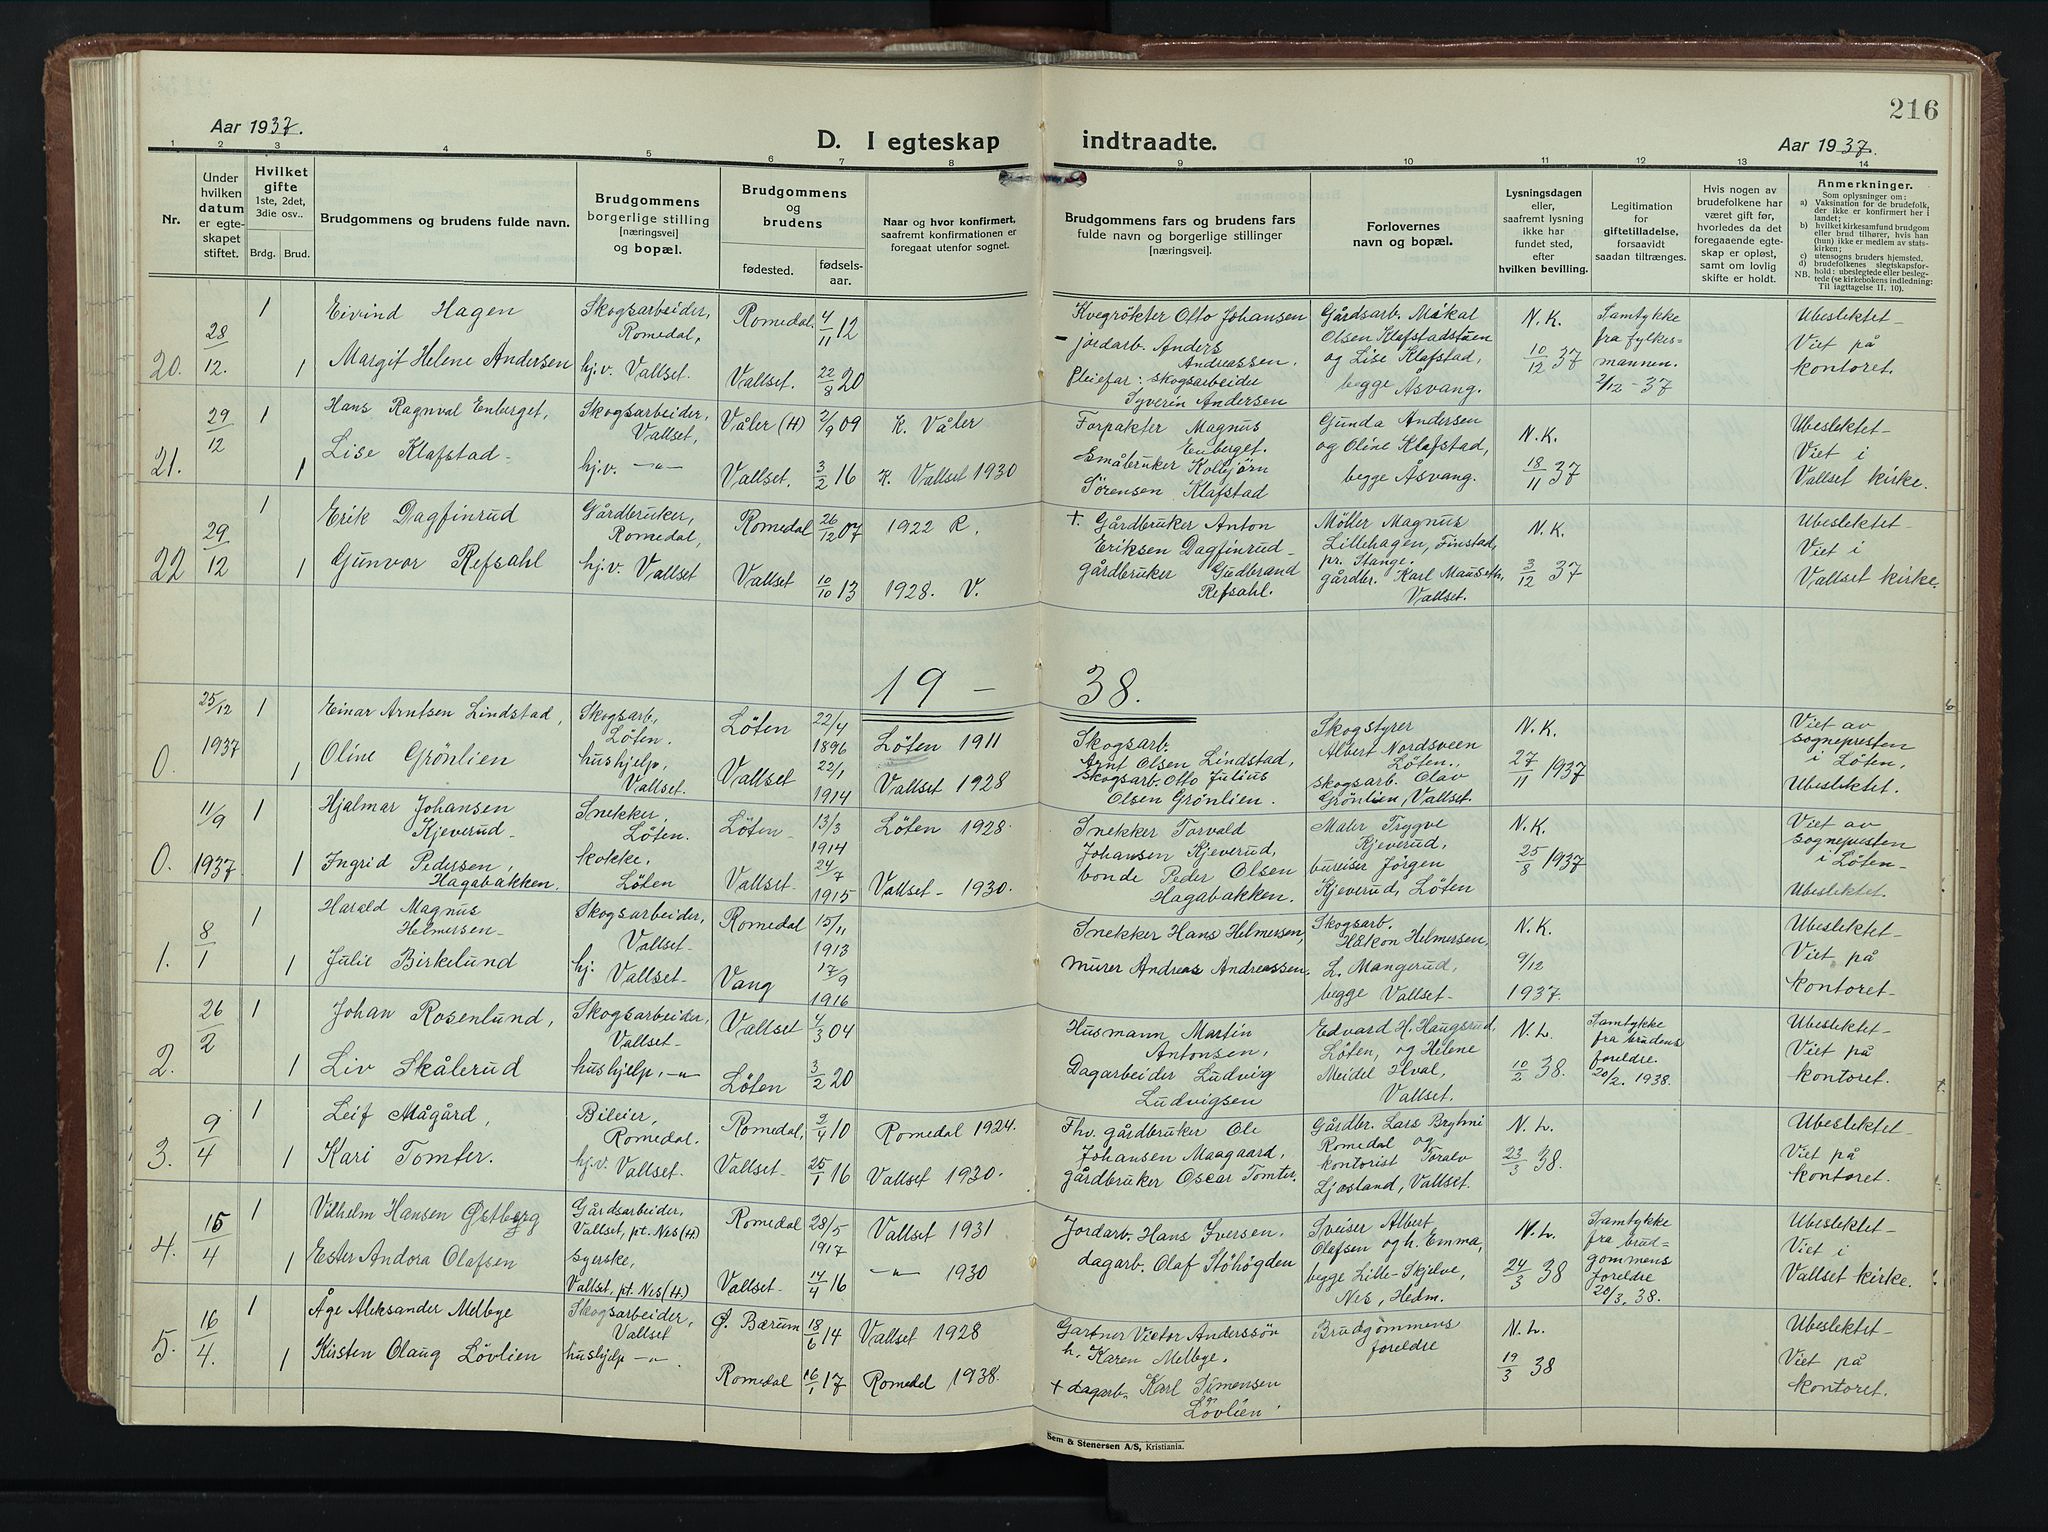 216
Aar 1937.
D. I egteskap indtraadte.
Aar 1937.
1 2 3 4 5 6 7 8 9 10 11 12 13 14
Nr.
Under hvilken datum er egteskapet stiftet.
Hvilket gifte 1ste, 2det, 3die osv..
Brdg. Brud.
Brudgommens og brudens fulde navn.
Brudgommens borgerlige stilling [næringsvei] og bopæl.
Brudgommens og brudens
fødested. fødselsaar.
Naar og hvor konfirmert, saafremt konfirmationen er foregaat utenfor sognet.
Brudgommens fars og brudens fars fulde navn og borgerlige stillinger [næringsvei]
Forlovernes navn og bopæl.
Lysningsdagen eller, saafremt lysning ikke har fundet sted, efter hvilken bevilling.
Legitimation for giftetilladelse, forsaavidt saadan tiltrænges.
Hvis nogen av brudefolkene har været gift før, hvorledes da det foregaaende egteskap er opløst, samt om lovlig skifte er holdt.
Anmerkninger.
Som oplysninger om:
a) Vaksination for de brudefolk, der ikke er konfirmert her i landet;
b) hvilket kirkesamfund brudgom eller brud tilhører, hvis han (hun) ikke er medlem av statskirken;
c) utensogns bruders hjemsted.
d) brudefolkenes slegtskapsforhold: ubeslegtede eller beslegtede (se kirkebokens indledning: Til iagttagelse II. 10).
NB.
20. 28/12. 1 Eivind Hagen Skogsarbeider, Romedal, Romedal. 4/11 12 Kvegrökter Otto Johansen Gårdsarb. Mikal Olsen Klafstadstuen N.K. Samtykke fra fylkesmannen. 2/12-37 Ubeslektet-
1 Margit Helene Andersen hj.v. Vallset. Vallset. 22/8 20 - jordarb. Anders Andreassen. Pleiefar: skogsarbeider Syverin Andersen og Lise Klafstad, begge Åsvang. 10/12 37 Viet på kontoret.
21. 29/12 1 Hans Ragnval Enberget, Skogsarbeider, Vallset, Våler (H) 2/9 09 K. Våler Forpakter Magnus Enberget. Gunda Andersen og Oline Klafstad, N.K. Ubeslektet-
1 Lise Klafstad- hj.v. -"- Vallset. 3/2 16 K. Vallset 1930 Småbruker Kolbjörn Sörensen Klafstad begge Åsvang. 18/11 37 Viet i Vallset kirke.
22 29/12 1 Erik Dagfinrud Gårdbruker, Romedal, Romedal 26/12 07 1922 R. + Gårdbruker Anton Eriksen Dagfinrud- Möller Magnus Lillehagen, Finstad, pr. Stange. N.K. Ubeslektet-
1 Gunvor Refsahl hj.v. Vallset Vallset 10/10 13 1928. V. gårdbruker Gudbrand Refsahl. gårdbr. Karl Mauseth, Vallset. 3/12 37 Viet i Vallset kirke.
19 - 38.
0. 25/12 1937 1 Einar Arntsen Lindstad, Skogsarb, Löten. Löten 22/4 1896 Löten 1911 Skogsarb. Arnt Olsen Lindstad, Skogstyrer Albert Nordsveen Löten. N.K. Viet av sognepresten i Löten,
1 Oline Grönlien hushjelp, Vallset. Vallset 22/1 1914 Vallset 1928 skogsarb. Otto Julius Olsen Grönlien. skogsarb. Olav Grönlien, Vallset. 27/11 1937 Ubeslektet.
0. 11/9 1937 1 Hjalmar Johansen Kjeverud- Snekker, Löten. Löten- 13/3 1914 Löten 1928. Snekker Torvald Johansen Kjeverud, Maler Trygve Kjeverud, N.K. Viet av sognepresten i Löten-
1 Ingrid Pedersen, Hagabakken. kokke, Löten Vallset- 24/7 1915 Vallset- 1930. bonde Peder Olsen Hagabakken. bureiser Jörgen Kjeverud, Löten 25/8 1937 Ubeslektet.
1. 8/1 1 Harald Magnus Helmersen- Skogsarbeider, Vallset- Romedal 15/11 1913 Snekker Hans Helmersen, Skogsarb. Håkon Helmersen, N.K. Ubeslektet-
1 Julie Birkelund hj. Vallset- Vang 17/9 1916 murer Andreas Andreassen, L. Mangerud, begge Vallset- 9/12 1937. Viet på kontoret-
2. 26/2 1 Johan Rosenlund, Skogsarbeider, Vallset- Vallset 4/3 04 Husmann Martin Antonsen, Edvard H. Haugsrud, Löten, og Helene N.L. Samtykke fra brudens foreldre. 20/2. 1938. Ubeslektet-
1 Liv Skålerud hushjelp, -"- Löten 3/2 20 Dagarbeider Ludvig Ludvigsen Meidel Hval, Vallset. 10/2 38. Viet på kontoret.
3. 9/4 1 Leif Mågård, Bileier, Romedal. Romedal, 9/4 10 Romedal 1924. Fhv. gårdbruker Ole Johansen Maagaard, Gårdbr. Lars Bryhni Romedal og N.L. Ubeslektet-
1 Kari Tomter. hj.v. Vallset. Vallset- 25/1 16 Vallset 1930. gårdbruker Oscar Tomter. kontorist Toralv Ljosland, Vallset. 23/3 38. Viet på kontoret.
4. 15/4 1 Vilhelm Hansen Östberg Gårdsarbeider, Vallset, pt. Nes (H) Romedal 28/5 1917 Vallset 1931 Jordarb. Hans Iversen. Sveiser Albert Olafsen og h. Emma, N.L. Samtykke fra brudgommens foreldre 20/3. 38. Ubeslektet-
1 Ester Andora Olafsen syerske, Vallset, pt. Nes (H.) Vallset. 14/4 16 -"- 1930 dagarb. Olaf Stöhögden begge Lille-Skjelve, Nes, Hedm. 24/3 38 Viet i Vallset kirke.
5. 16/4. 1 Åge Aleksander Melbye Skogsarbeider, Vallset Ö. Bærum 18/6 14 Vallset 1928 Gartner Victor Anderssön h. Karen Melbye. Brudgommens foreldre N.L. Ubeslektet-
1 Kirsten Olaug Lövlien hushjelp -"-. Romedal 16/1 17 Romedal 1938. + dagarb. Karl Simensen Lövlien. 19/3 38 Viet på kontoret.
Sem & Stenersen A/S, Kristiania.